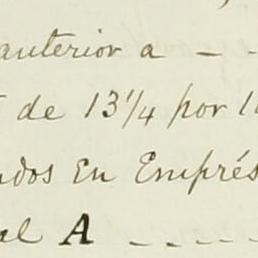 anterior a - -
de 13 1/4 por 1
ados En Emprés
al A - - - -